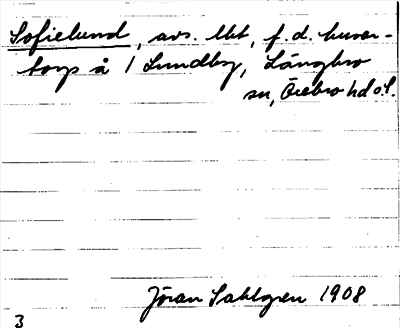 Sofielund, avs. lht, f.d. husar-
torp å 1 Lundby, Längbro
sn, Örebro hd o l.
Jöran Sahlgren 1908
3